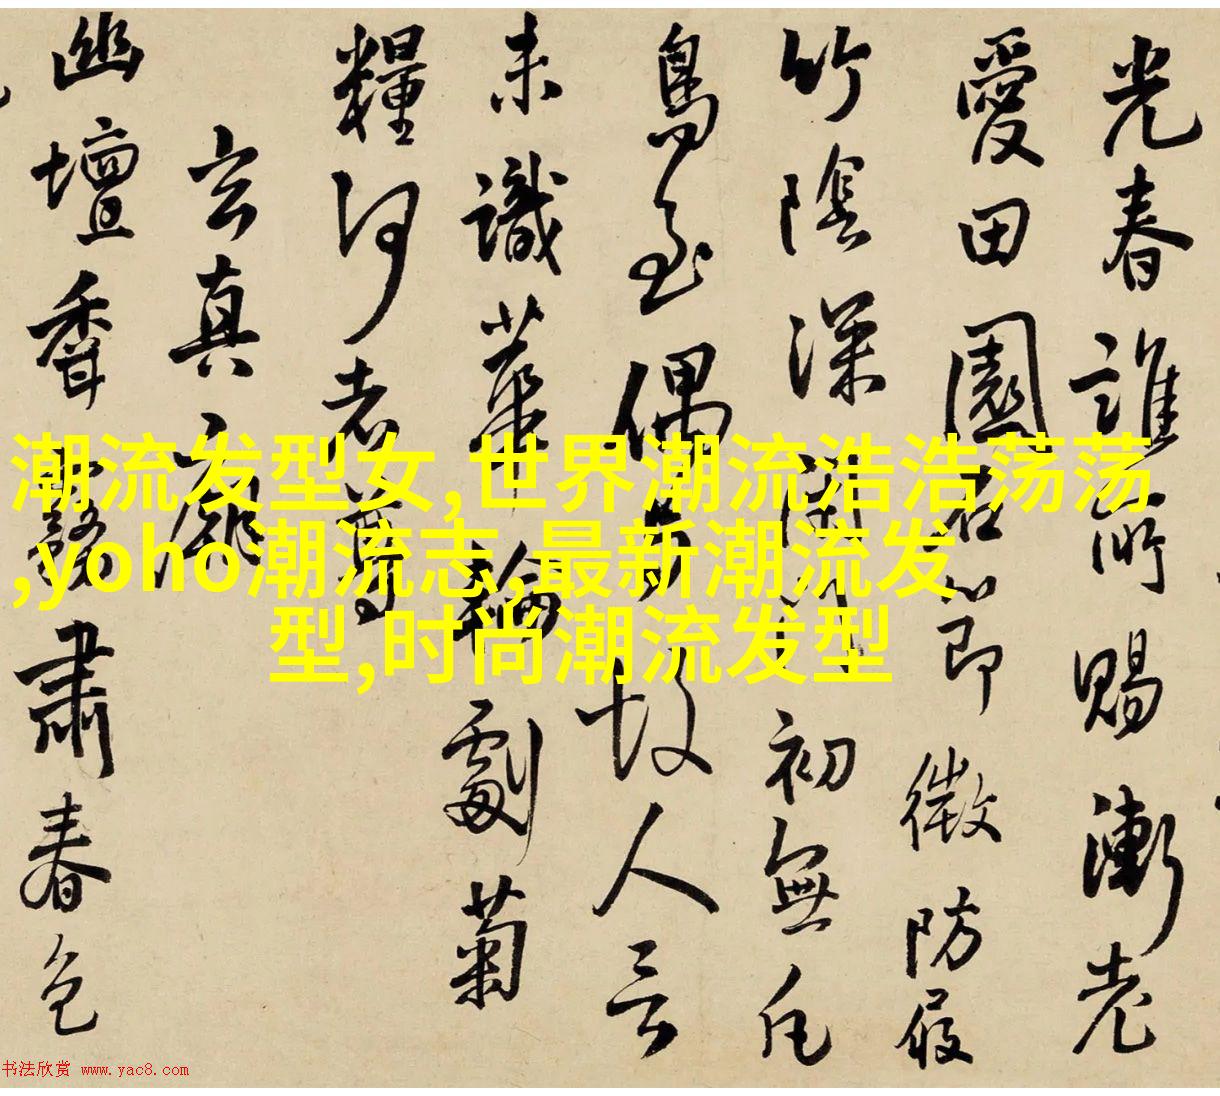 光春誰所賜漸老
愛田園石節微防屐
竹陰深閉門初無凡
鳥至偶與故人言
未識華輪劇菊
糧何老尊
玄真
幽壇香肅春色
潮流发型女,世界潮流浩浩荡荡
,yoho潮流志,最新潮流发
型,时尚潮流发型
书法欣赏 www.yac8.com